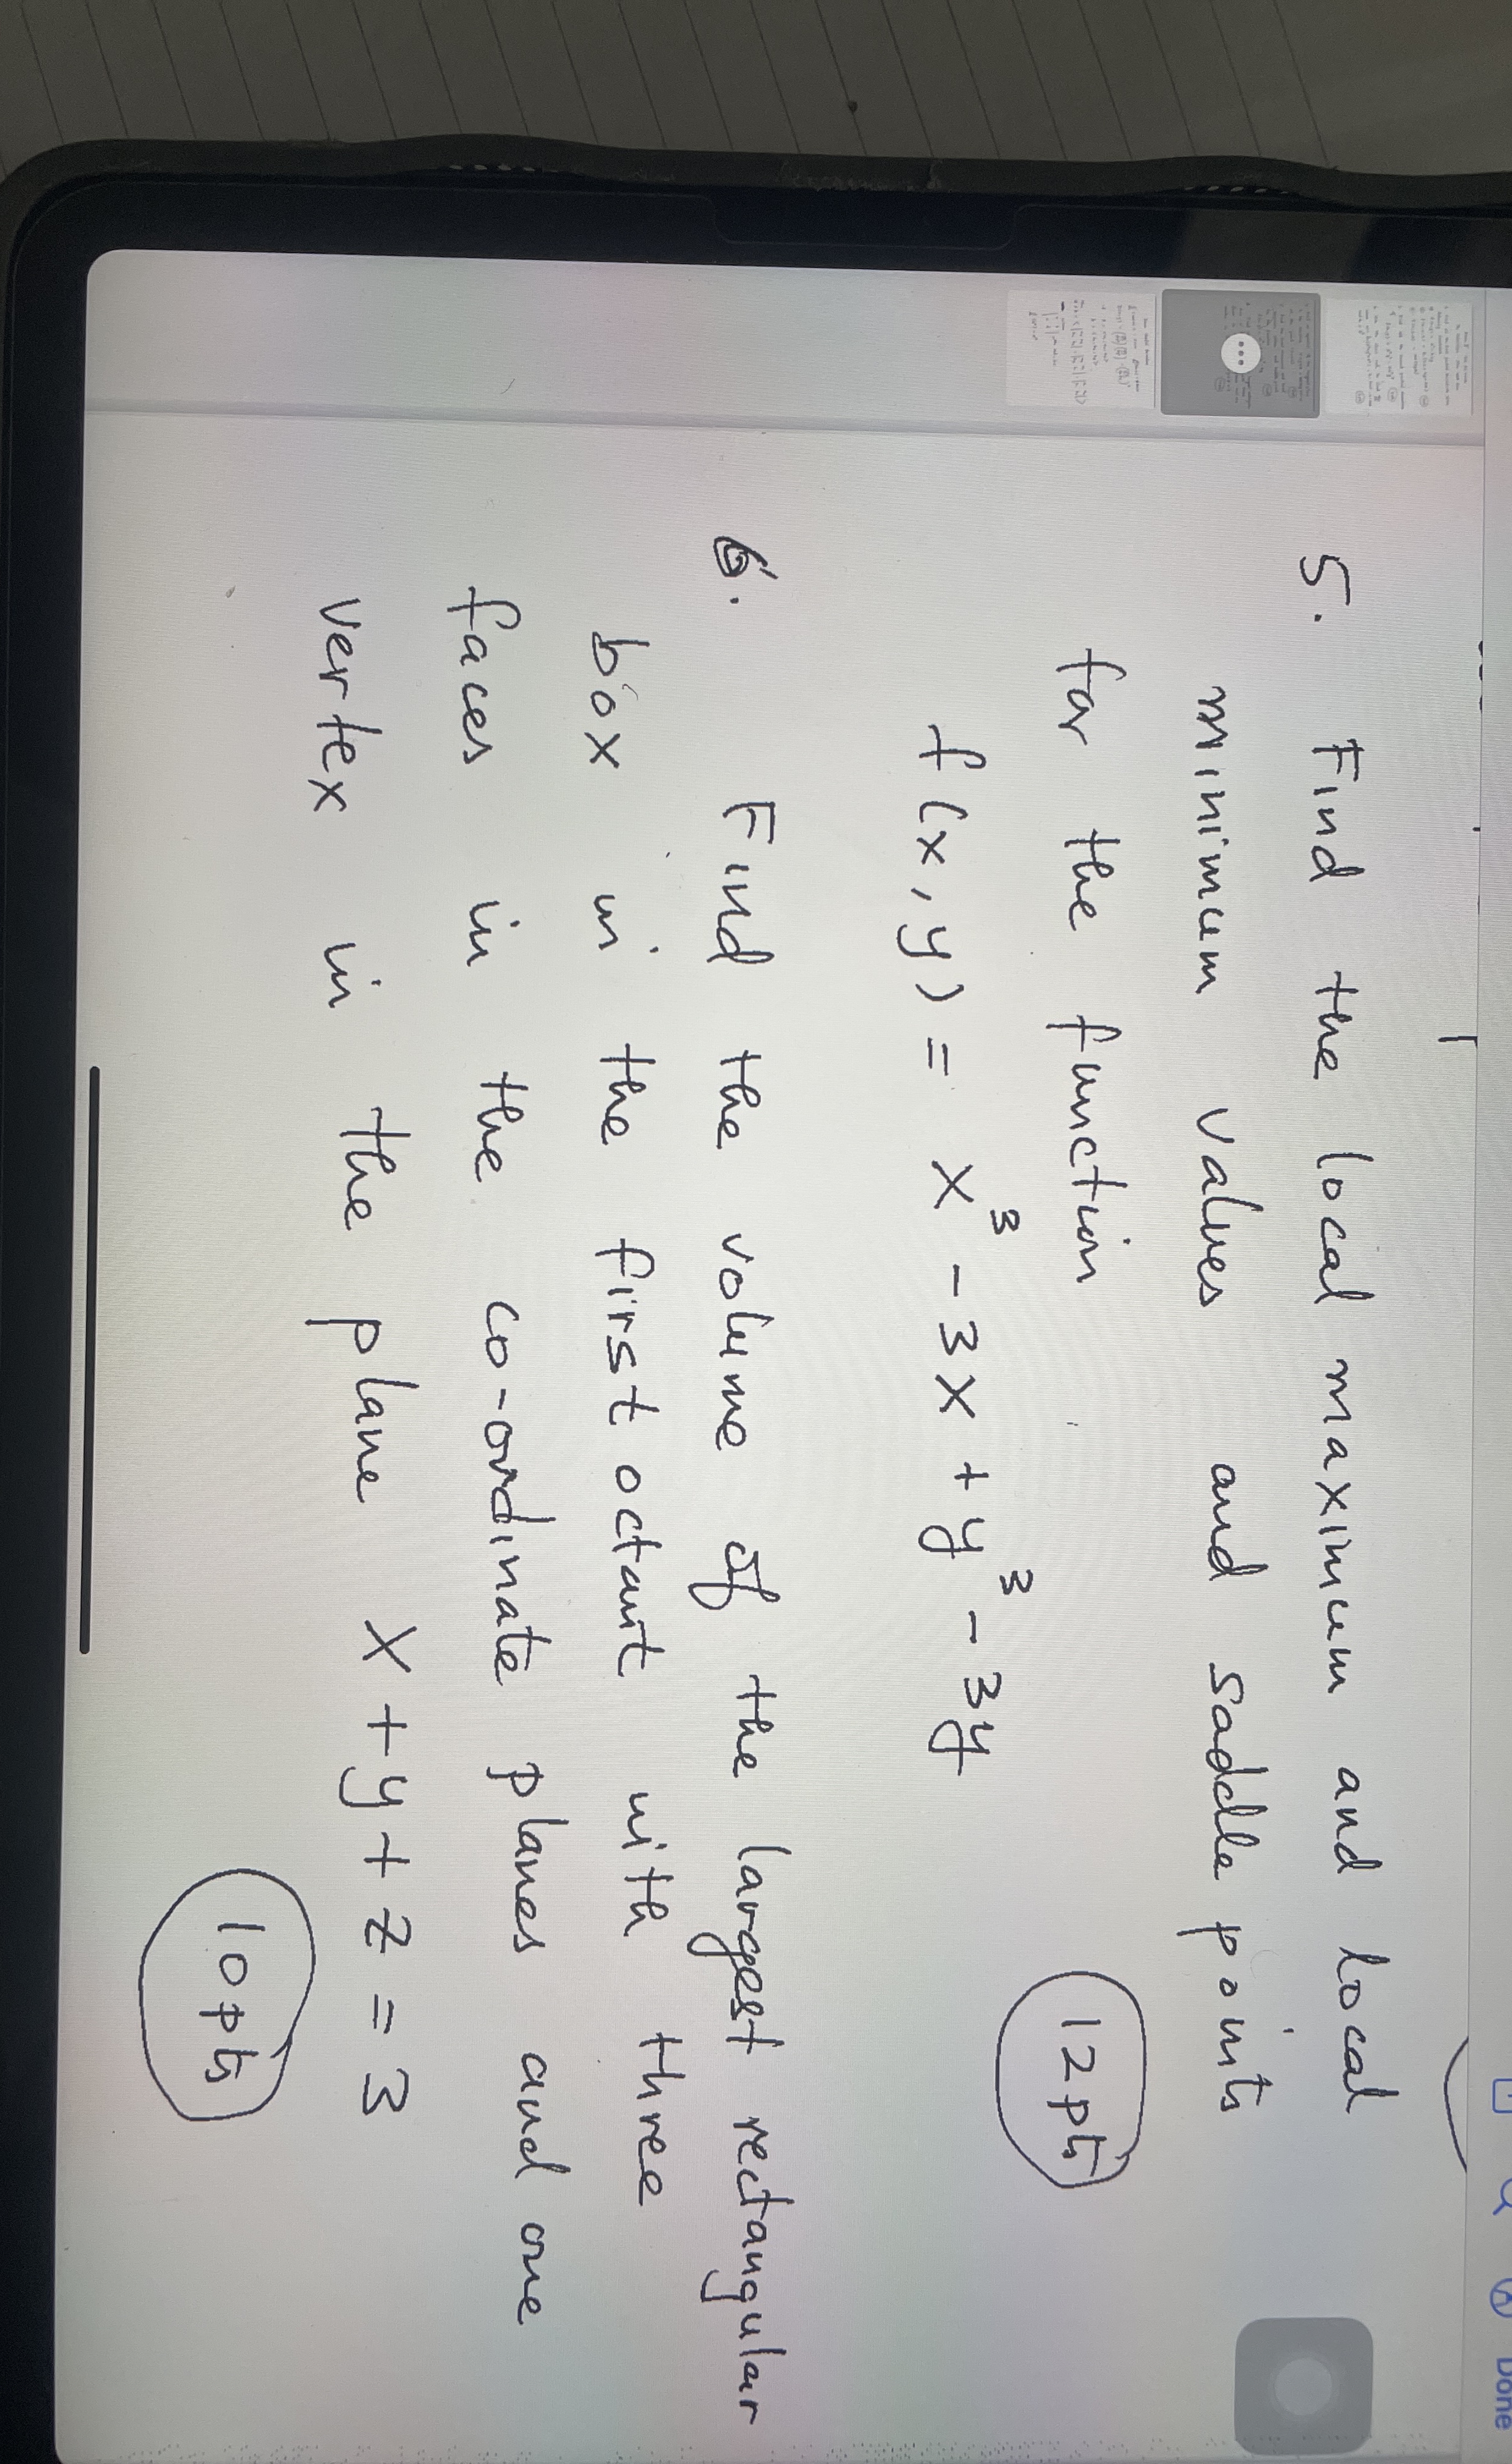 Done
5. Find the local maximum and local
minimum values and saddle points
for the function
12pts
f(x,y) = x³ - 3x + y³ - 3y
6. Find the volume of the largest rectangular
box in the first octant with three
faces in the co-ordinate planes and one
vertex in the plane x + y + z = 3
10pts